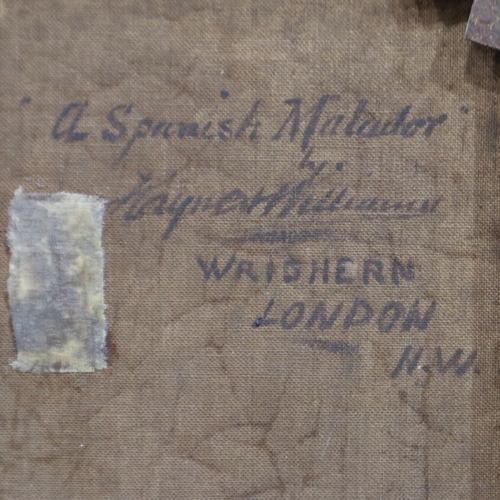 "A Spanish Matador"
by.
Haynes Williams
WRIGHERN
LONDON
N.W.